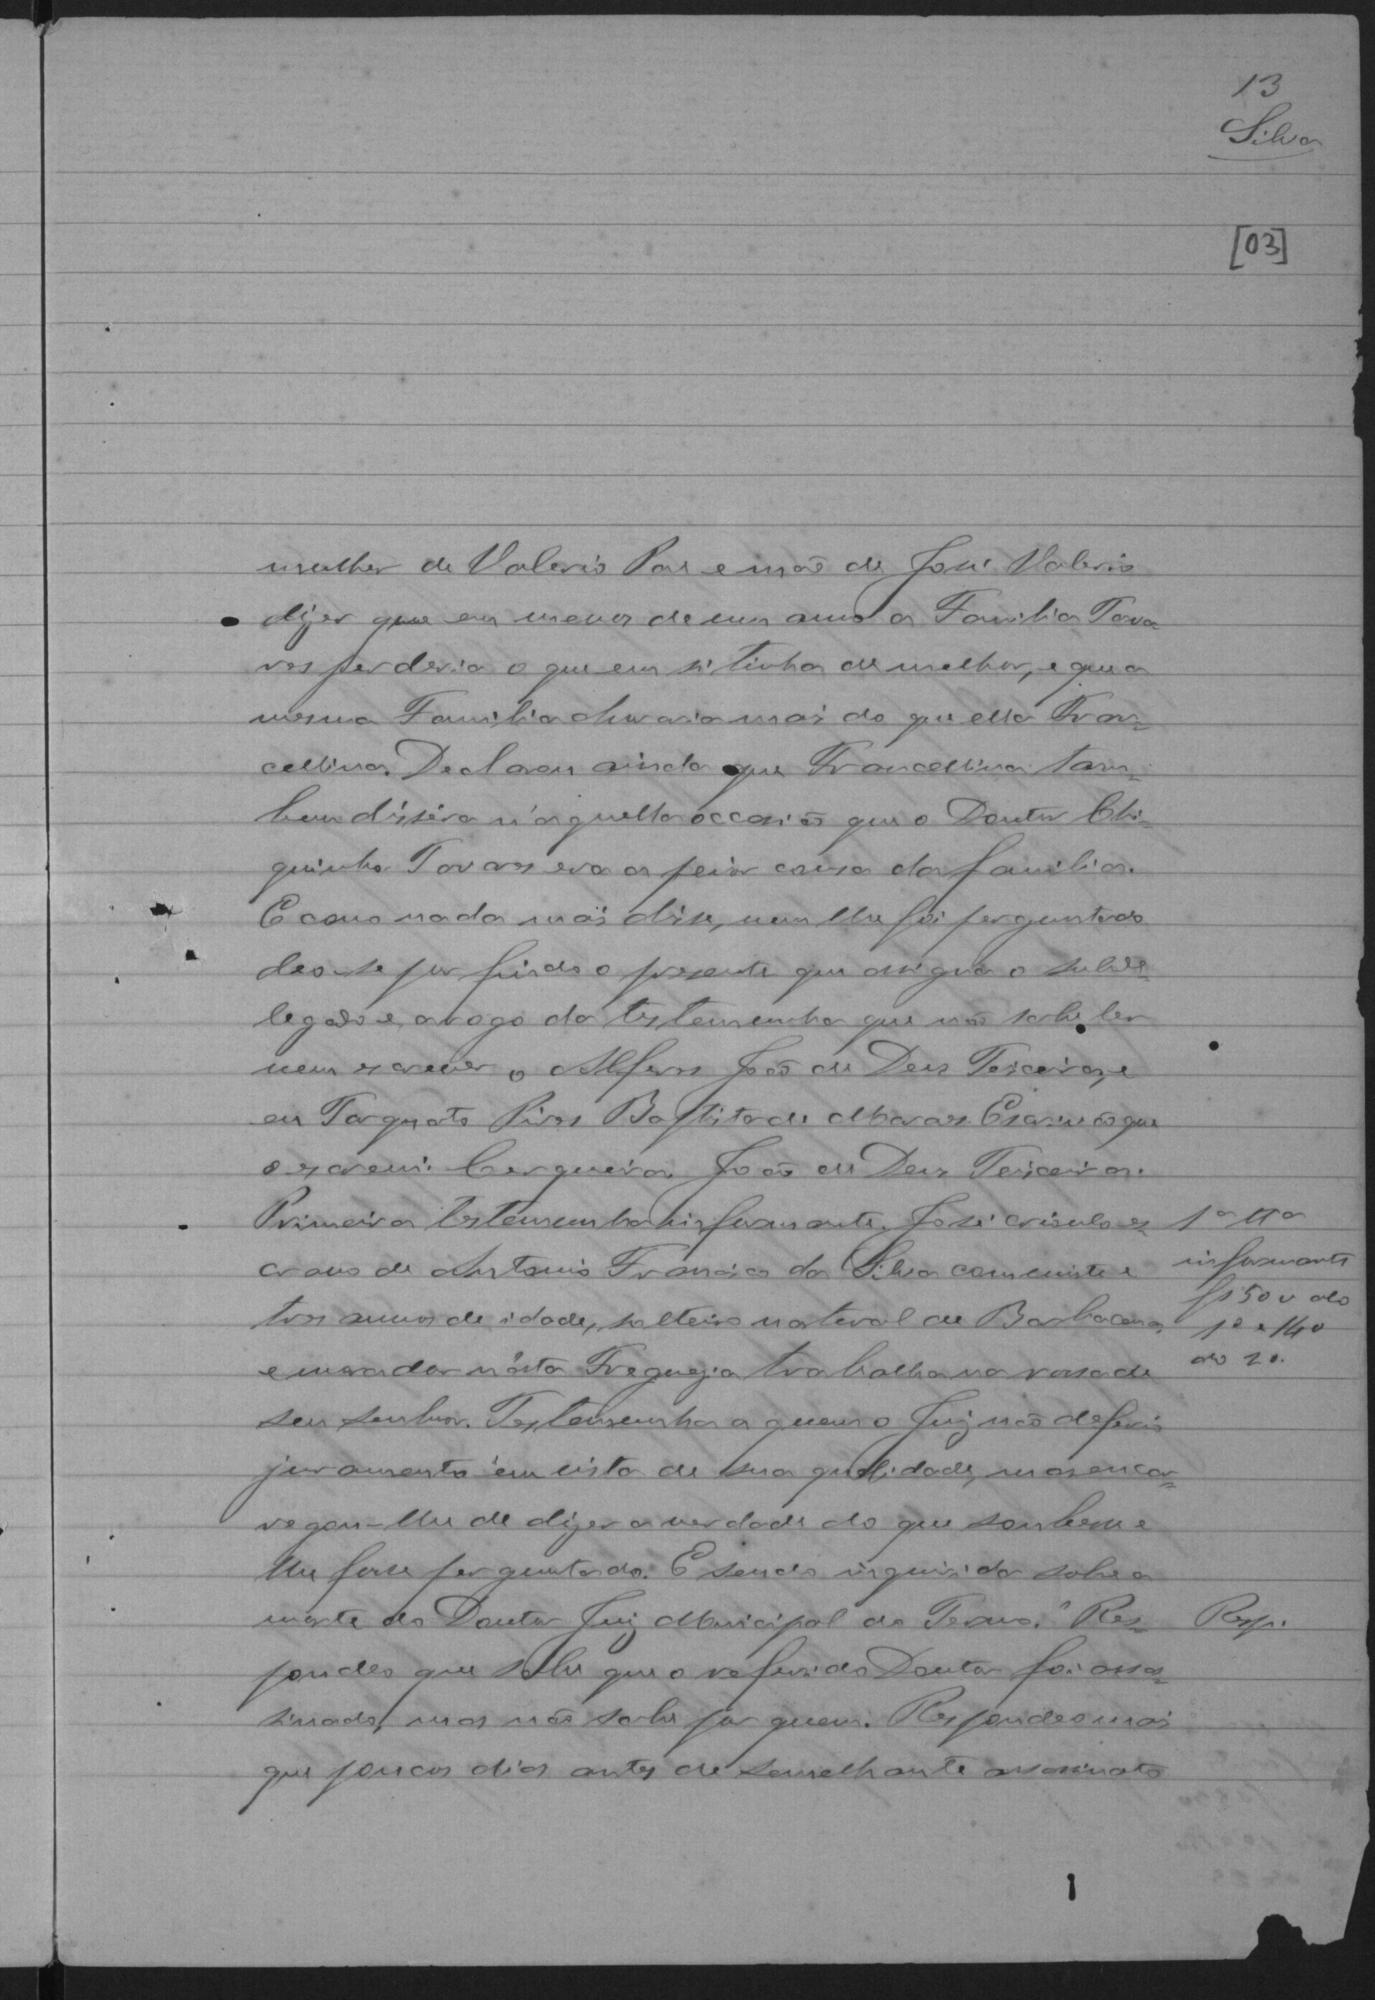 13
Silva
[03]
mulher de Valerio Pae e mãe de José Valerio
dizer que em menos de um anno a Familia Tava
res perderia o que em si tinha de melhor, e que a
mesma Familia choraria mais do que ella Fran=
cellina. Declarou ainda que Francellina tam=
bem dissera n'aquella occasião que o Doutor Chi=
quinho Tavares era a peior cousa da familia.
E como nada mais disse, nem lhe foi perguntado
deo-se por findo o presente que assigna o subde=
legado e, a rogo da testemunha que não sabe ler
nem escrever o Alferes João de Deus Teixeira, e
eu Torquato Pires Baptista de Moraes Escrivão que
o escrevi. Cerqueira. João de Deus Teixeira.
Primeira testemunha informante. José crioulo es=
cravo de Antonio Francisco da Silva com vinte e
tres annos de idade, solteiro natural de Barbacena,
e morador nésta Freguezia trabalha na rossa de
seu senhor. Testemunha a quem o Juiz não deferio
juramento em vista de sua qualidade, mas encar=
regou-lhe de dizer a verdade do que soubesse e
lhe fosse perguntado. E sendo inquirido sobre a
morte do Doutor Juiz Municipal do Termo. Res=
pondeo que sabe que o referido Doutor foi assas=
sinado, mas não sabe por quem. Respondeo mais
que poucos dias antes de semelhante assassinato
1ª ttª
informante
fs 50 v do
1º e 140
do 2º.
Resp.